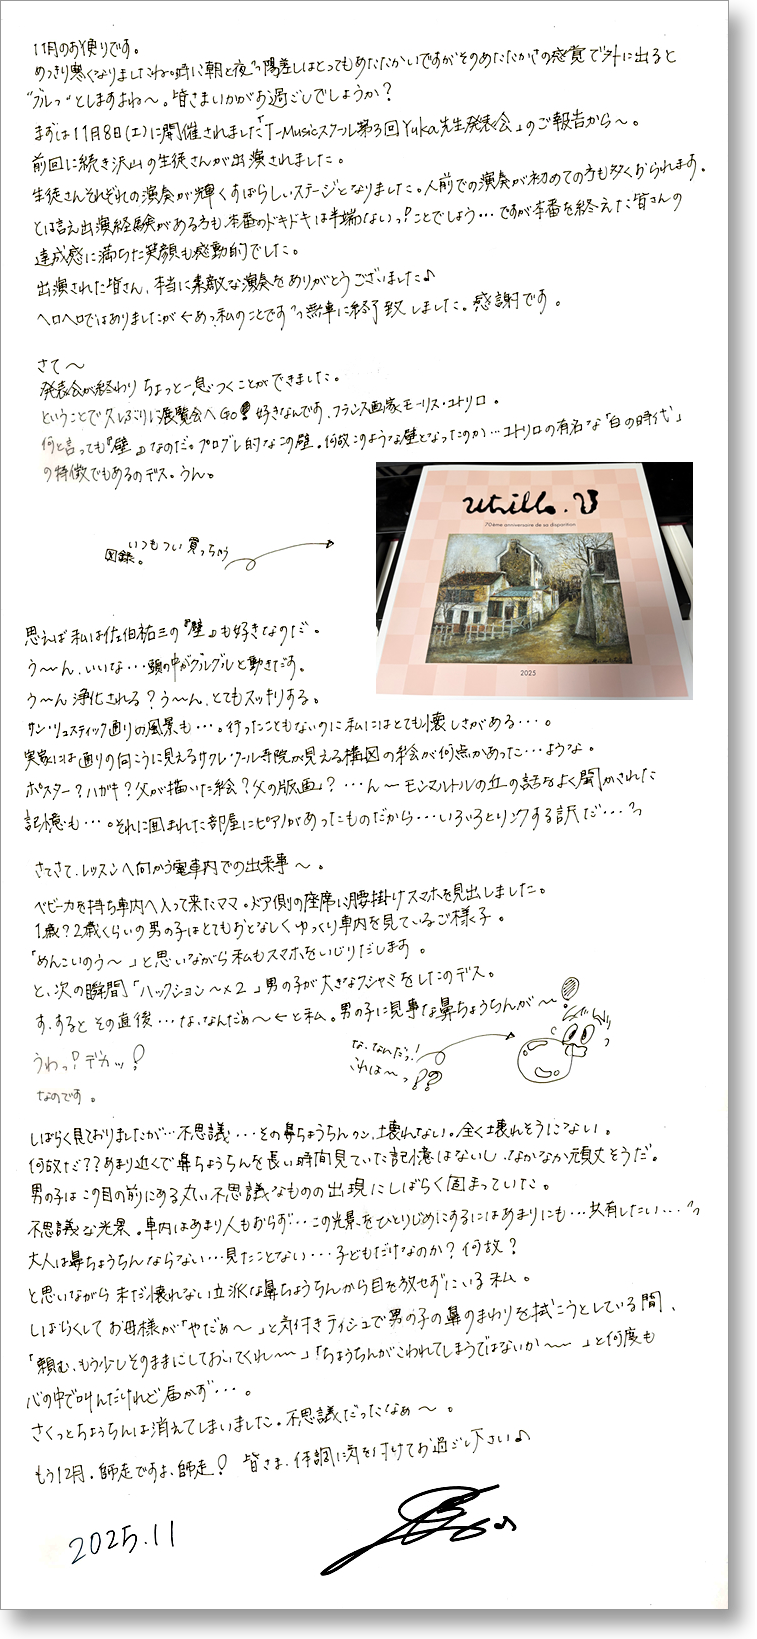 11月のお便りです。
めっきり寒くなりましたね。特に朝と夜"" 陽差しはとってもあたたかいですがそのあたたかさの感覚で外に出ると
"ブルっ"としますよね〜。皆さまいかがお過ごしでしょうか?
まずは11月8日(土)に開催されました「T-Musicスクール第3回Yuka先生発表会」のご報告から〜。
前回に続き沢山の生徒さんが出演されました。
生徒さんそれぞれの演奏が輝くすばらしいステージとなりました。人前での演奏が初めての方も多くおられます。
とは言え出演経験がある方も本番のドキドキは半端ないっ!ことでしょう…ですが本番を終えた皆さんの
達成感に満ちた笑顔も感動的でした。
出演された皆さん、本当に素敵な演奏をありがとうございました♪
ヘロヘロではありましたが←あっ、私のことですっ 無事に終了致しました。感謝です。
さて〜
発表会が終わり ちょっと一息つくことができました。
ということで久しぶりに展覧会へGO! 好きなんです、フランス画家モーリス・ユトリロ。
何と言っても『壁』なのだ。プログレ的なこの壁。何故このような壁となったのか…ユトリロの有名な「白の時代」
の特徴でもあるのデス。うん。
utrillo. V
70ème anniversaire de sa disparition
2025
図録。いつもつい買っちゃう
思えば私は佐伯祐三の『壁』も好きなのだ。
う〜ん、いいな…頭の中がグルグルと動きだす。
う〜ん 浄化される? う〜ん、とてもスッキリする。
サン・リュスティック通りの風景も…。行ったこともないのに私にはとても懐しさがある…。
実家には通りの向こうに見えるサクレ・クール寺院が見える構図の絵が何点かあった…ような。
ポスター?ハガキ?父が描いた絵?父の版画?…ん〜モンマルトルの丘の話をよく聞かされた
記憶も…。それに囲まれた部屋にピアノがあったものだから…いろいろとリンクする訳だ…っ
さてさて、レッスンへ向かう電車内での出来事〜。
ベビーカを持ち車内へ入って来たママ。ドア側の座席に腰掛けスマホを見出しました。
1歳?2歳くらいの男の子はとてもおとなしくゆっくり車内を見ているご様子。
「めんこいのう〜」と思いながら私もスマホをいじりだします。
と、次の瞬間「ハックション〜×2」男の子が大きなクシャミをしたのデス。
す、すると その直後…な、なんだぁ〜←と私。男の子に見事な鼻ちょうちんが〜!
な、なんだっ!
これは〜っ!?
うわっ!デカッ!
なのです。
しばらく見ておりましたが…不思議…その鼻ちょうちんクン、壊れない。全く壊れそうにない。
何故だ??あまり近くで鼻ちょうちんを長い時間見ていた記憶はないし、なかなか頑丈そうだ。
男の子はこの目の前にある丸い不思議なものの出現にしばらく固まっていた。
不思議な光景。車内はあまり人もおらず…この光景をひとりじめにするにはあまりにも…共有したい…っ
大人は鼻ちょうちんならない…見たことない…子どもだけなのか?何故?
と思いながら まだ壊れない立派な鼻ちょうちんから目を放せずにいる私。
しばらくしてお母様が「やだぁ〜」と気付きティシュで男の子の鼻のまわりを拭こうとしている間、
「頼む、もう少しそのままにしておいてくれ〜」「ちょうちんがこわれてしまうではないか〜」と何度も
心の中で叫んだけれど届かず…。
さくっとちょうちんは消えてしまいました。不思議だったなぁ〜。
もう12月。師走ですよ、師走! 皆さま、体調に気を付けてお過ごし下さい♪
2025.11